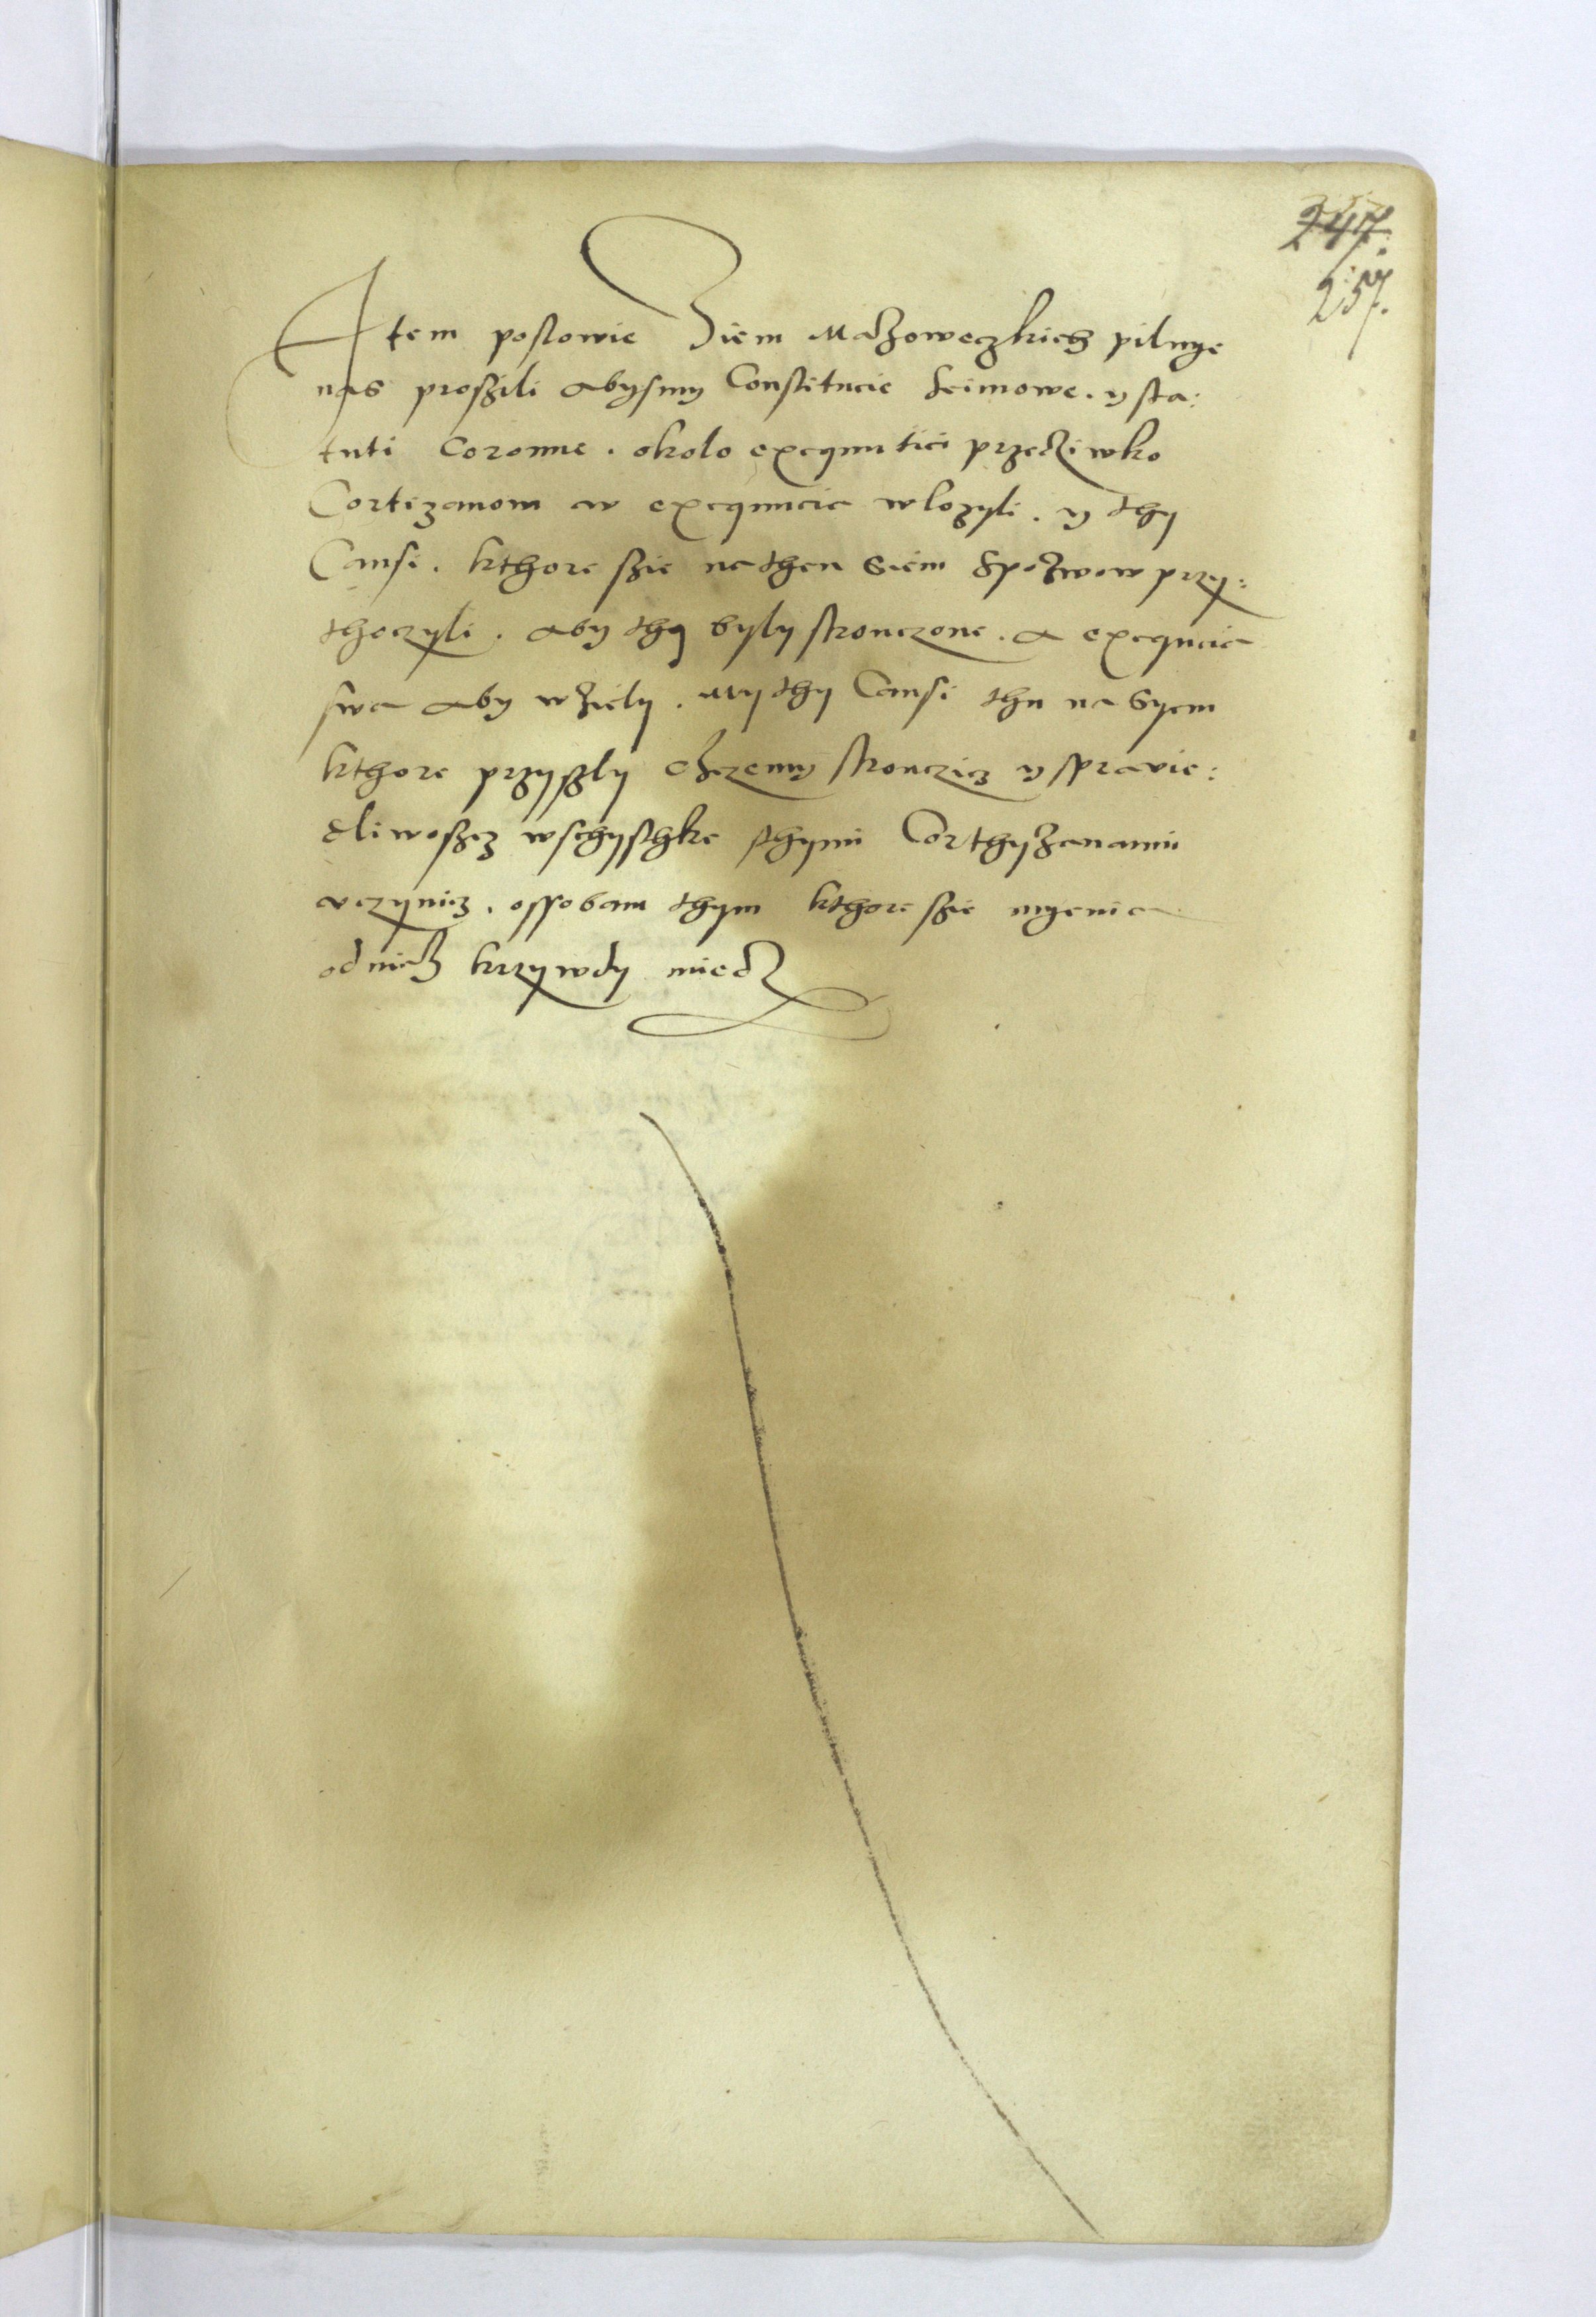 247.
257.
Item poslowie Ziem Mazoweczkich pilnye
nas proszili abysmy Constitucie seimowe. y sta:
tuti Coronne. okolo exequutiei przeciwko
Cortezanom w exequucie wlozyli. y thy
Causi. kthore szie na then Siem spozwow przy:
thoczyli. aby thy byly skonczone. a exequcia
swa aby wziely. My thy Causi thu na Syem
kthore przyszly chczemy skonczicz y spravie:
dliwoscz wschysthke sthymi Corthyzanami
vczynicz. ossobam thym kthore szie myenia
od nich krzywdy miecz